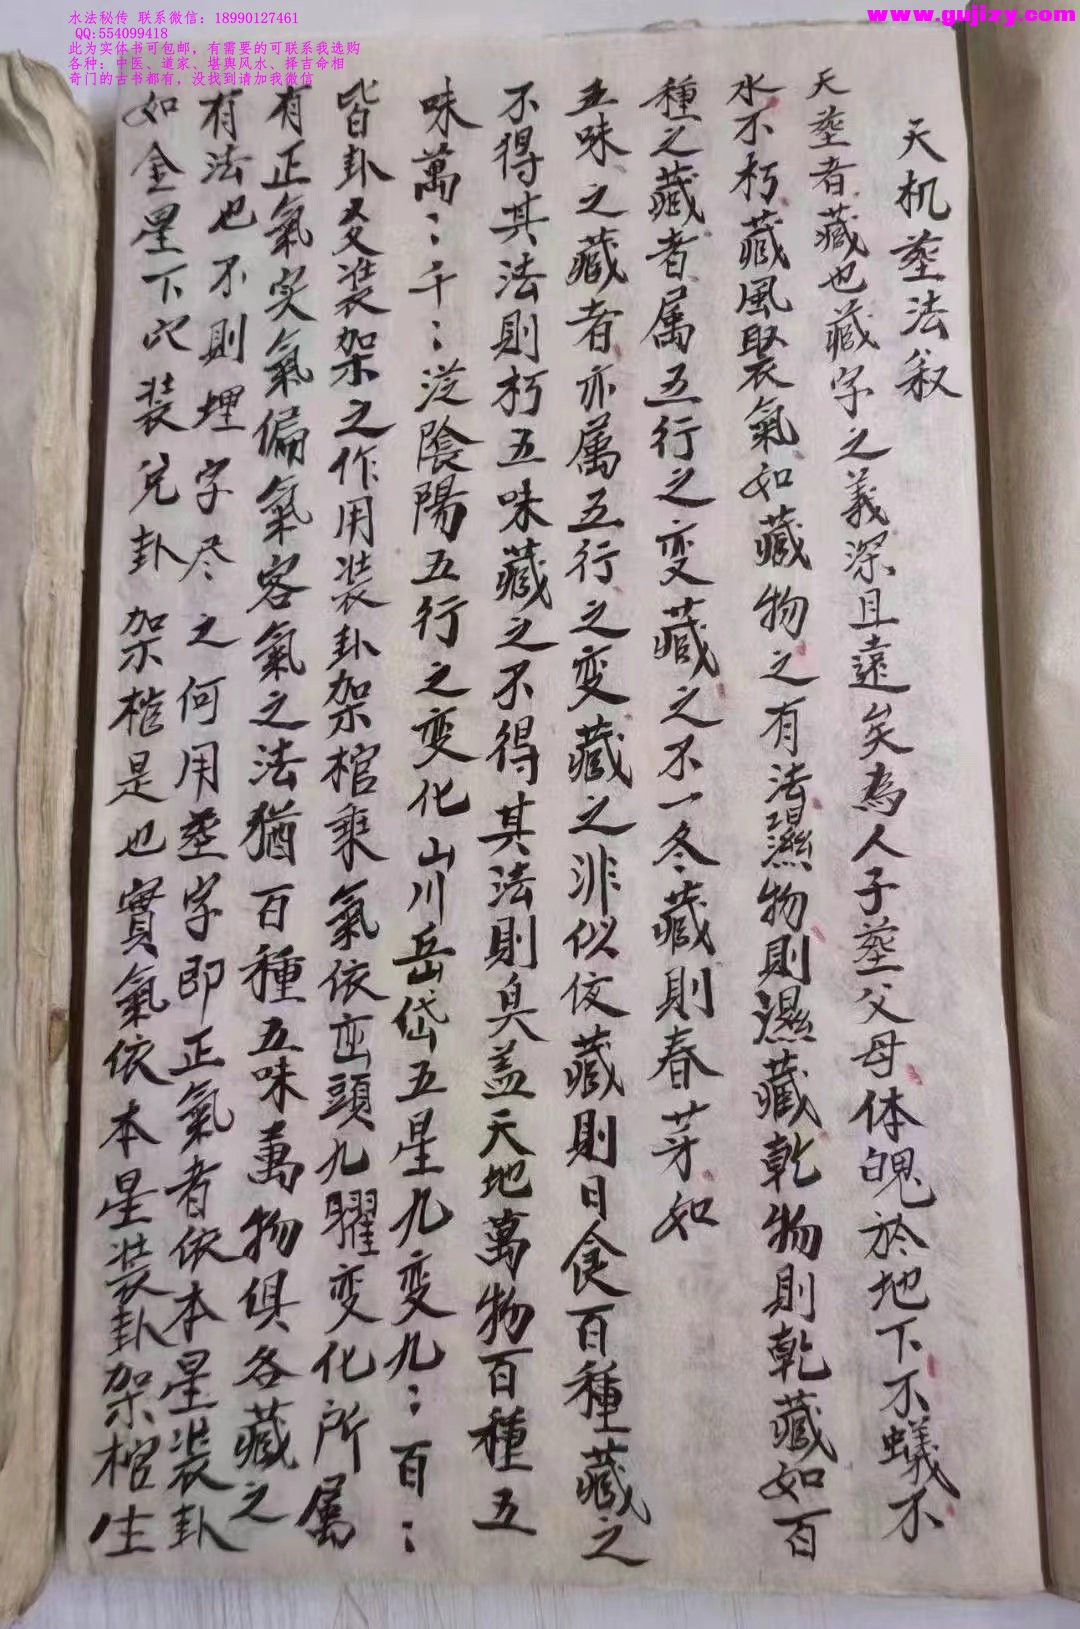 水法秘传 联系微信：18990127461
QQ:554099418
此为实体书可包邮，有需要的可联系我选购
各种：中医、道家、堪舆风水、择吉命相
奇门的古书都有，没找到请加我微信
www.gujizy.com
天机塟法叙
天塟者藏也藏字之義深且遠矣為人子塟父母体魄於地下不蟻不
水不朽藏風聚氣如藏物之有法濕物則濕藏乾物則乾藏如百
種之藏者属五行之变藏之不一冬藏則春芽如
五味之藏者亦属五行之变藏之非似伎藏則日食百種藏之
不得其法則朽五味藏之不得其法則臭盖天地萬物百種五
味萬〻千〻從陰陽五行之变化山川岳岱五星九变九〻百〻
皆卦爻装架之作用装卦架棺乘氣依峦頭九曜变化所属
有正氣实氣偏氣客氣之法猶百種五味萬物俱各藏之
有法也不則埋字尽之何用塟字即正氣者依本星装卦
如金星下穴装兌卦架棺是也實氣依本星装卦架棺生